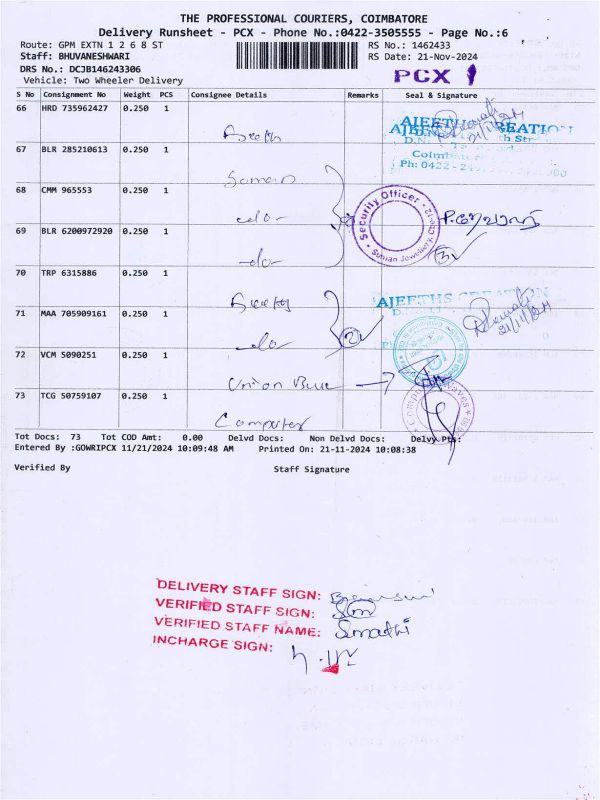 THE PROFESSIONAL COURIERS, COIMBATORE
Delivery Runsheet - PCX - Phone No.:0422-3505555 - Page No.:6
Route: GPM EXTN 1 2 6 8 ST
RS No.: 1462433
Staff: BHUVANESHWARI
RS Date: 21-Nov-2024
DRS No.: DCJB146243306
Vehicle: Two Wheeler Delivery
PCX
S No Consignment No Weight PCS Consignee Details Remarks Seal & Signature
66 HRD 735962427 0.250 1
AJEETHS CREATION
67 BLR 285210613 0.250 1
Coimbatore
Ph: 0422
68 CMM 965553 0.250 1
Security Officer
69 BLR 6200972920 0.250 1
-do-
3
70 TRP 6315886 0.250 1
AJEETHS CREATION
71 MAA 705909161 0.250 1
-do-
2
21/11/24
72 VCM 5090251 0.250 1
Union Blue
73 TCG 50759107 0.250 1
Computer
Tot Docs: 73 Tot COD Amt: 0.00 Delvd Docs: Non Delvd Docs: Delvy Pts:
Entered By :GOWRIPCX 11/21/2024 10:09:48 AM Printed On: 21-11-2024 10:08:38
Verified By Staff Signature
DELIVERY STAFF SIGN:
VERIFIED STAFF SIGN:
VERIFIED STAFF NAME: Smathi
INCHARGE SIGN: